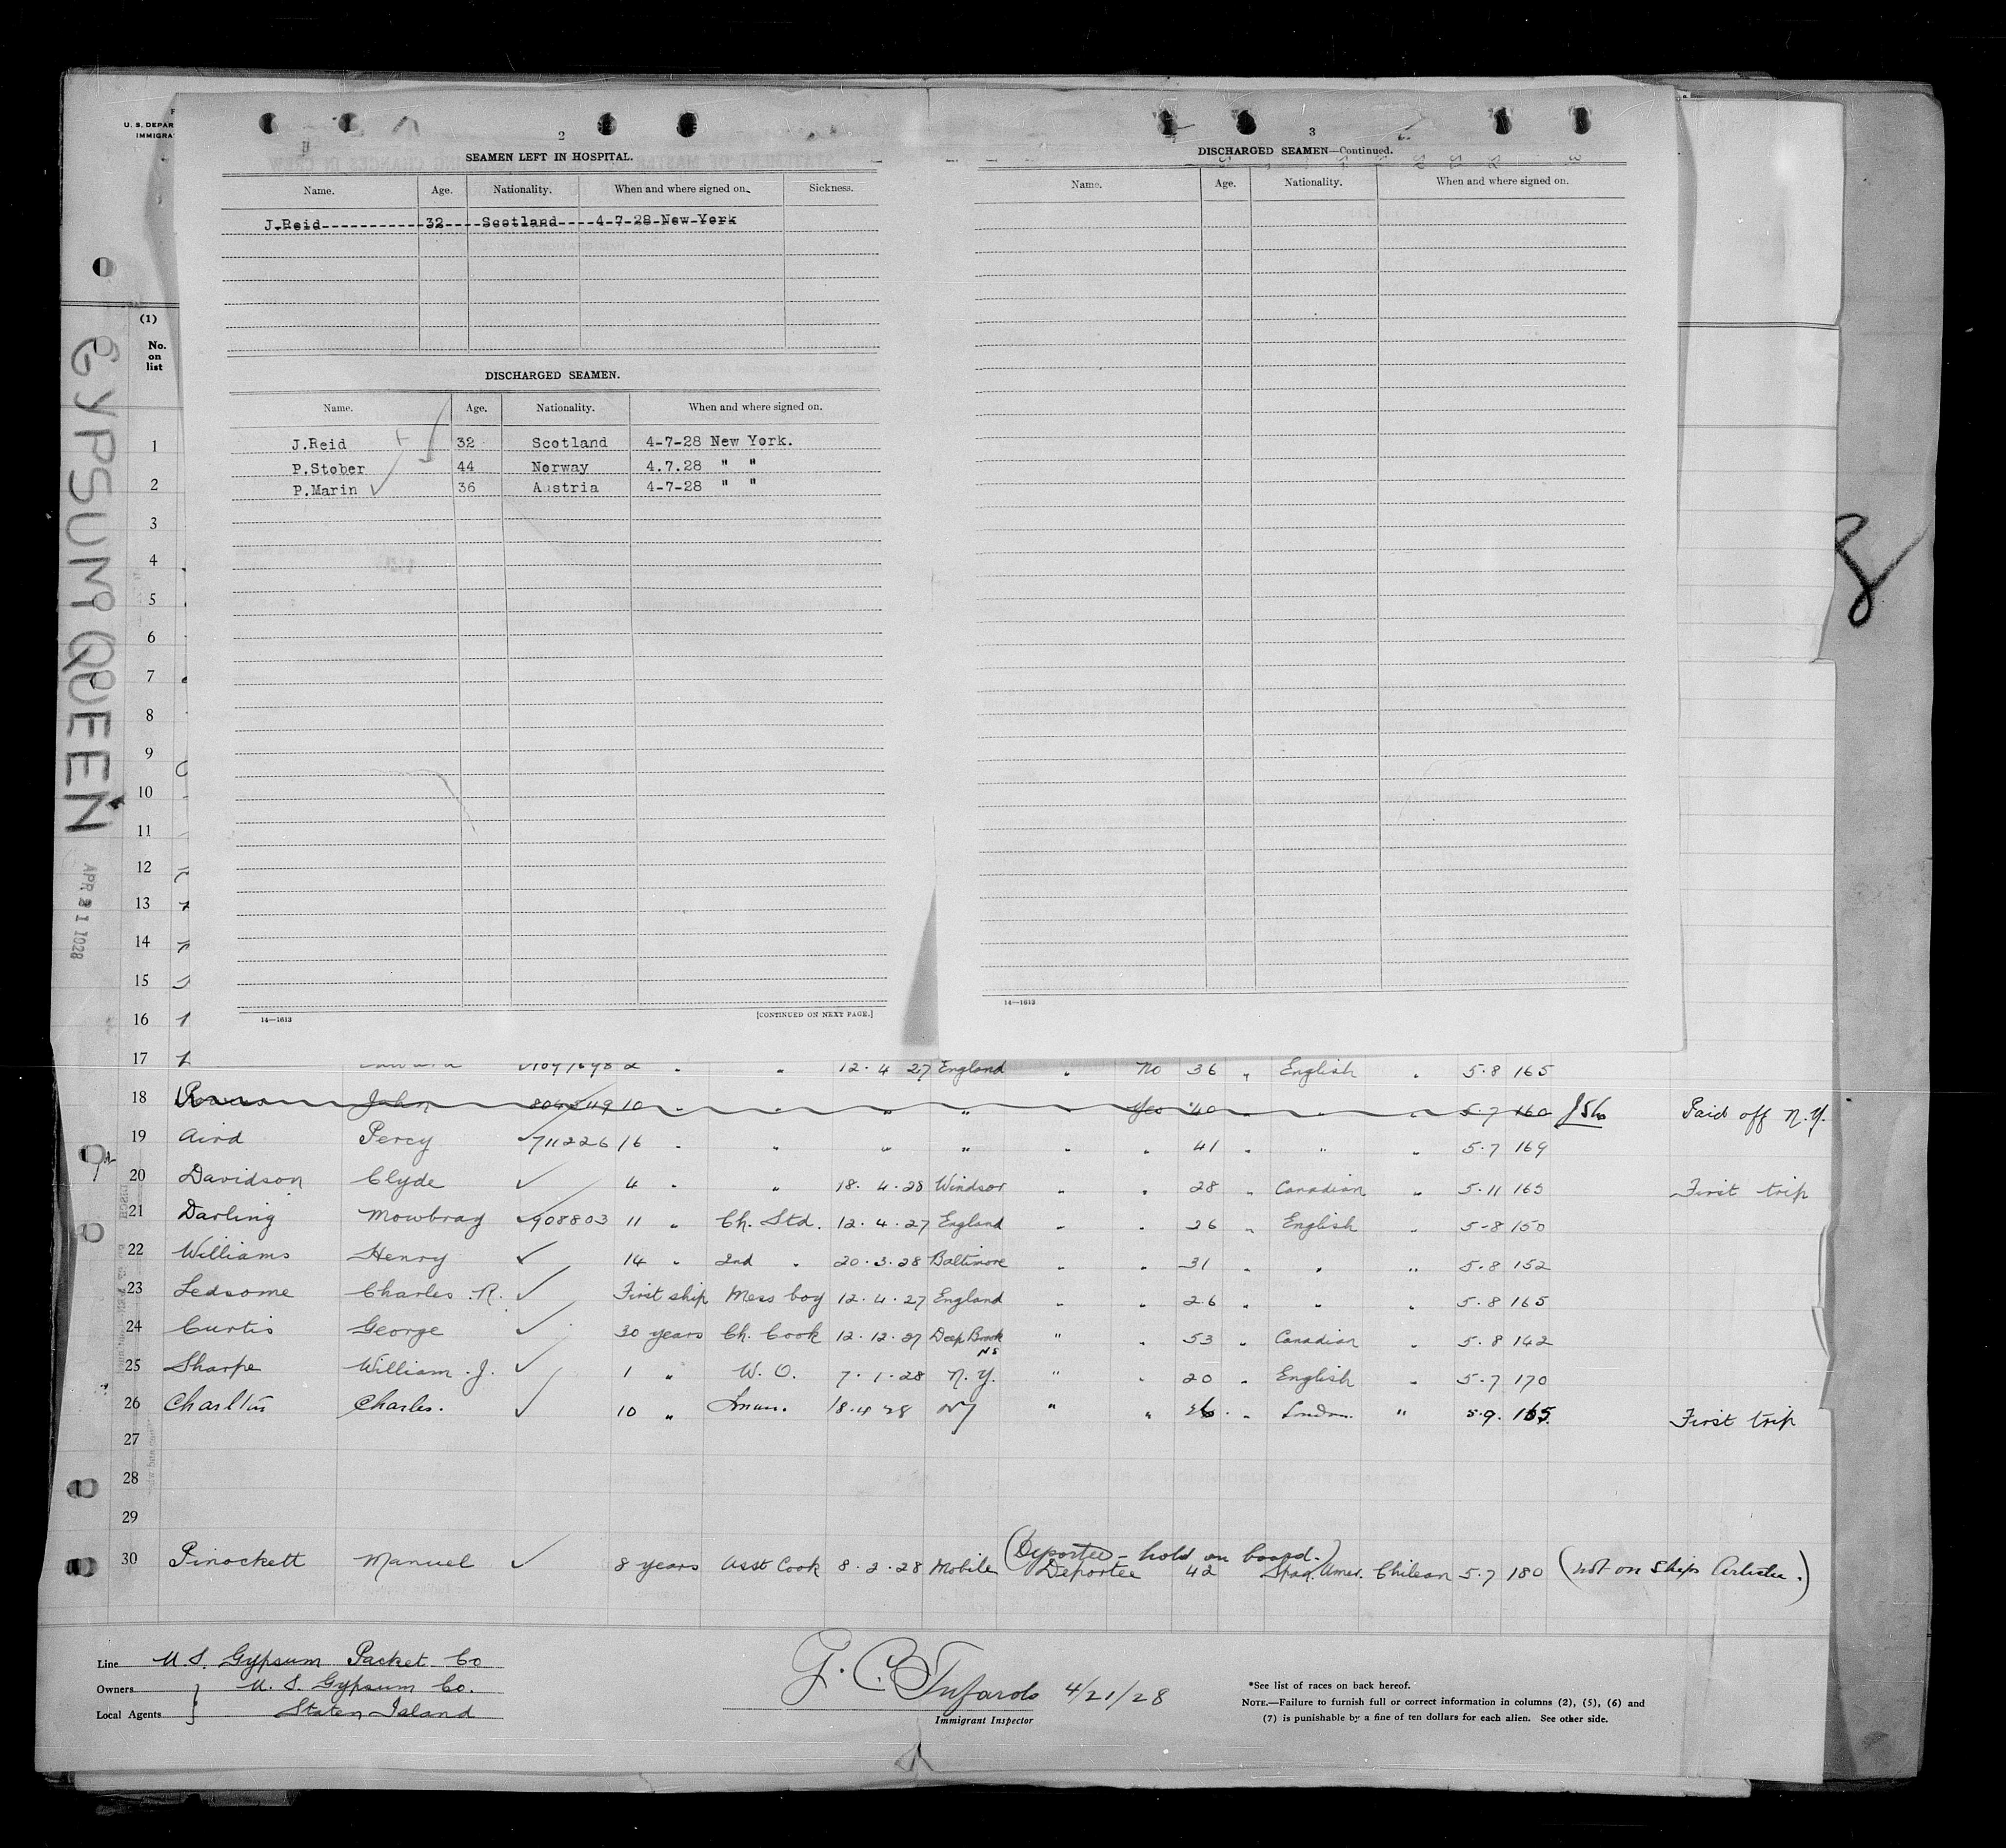 U. S. DEPAR
IMMIGRA
2
SEAMEN LEFT IN HOSPITAL.
Name. Age. Nationality. When and where signed on. Sickness.
J.Reid 32 Scotland 4-7-28 New York
DISCHARGED SEAMEN.
Name. Age. Nationality. When and where signed on.
J.Reid 32 Scotland 4-7-28 New York.
P.Stober 44 Norway 4.7.28 " "
P.Marin 36 Austria 4-7-28 " "
14—1613
[CONTINUED ON NEXT PAGE.]
3
DISCHARGED SEAMEN—Continued.
Name. Age. Nationality. When and where signed on.
14—1613
GYPSUM QUEEN
APR 21 1928
(1)
No. on list
1
2
3
4
5
6
7
8
9
10
11
12
13
14
15
16
17 12.4 27 England " No 36 " English " 5.8 165
18 John 10 " " " " " Yes 40 " " " 5.7 160 Paid off N.Y.
19 Aird Percy 711226 16 " " " " " " 41 " " " 5.7 169
20 Davidson Clyde 4 " " 18.4.28 Windsor " " 28 " Canadian " 5.11 165 First trip
21 Darling Mowbray 908803 11 " Ch. Std. 12.4.27 England " " 26 " English " 5-8 150
22 Williams Henry 14 " 2nd " 20.3.28 Baltimore " " 31 " " " 5.8 152
23 Ledsome Charles R. First ship Mess boy 12.4.27 England " " 26 " " " 5.8 165
24 Curtis George 30 years Ch. Cook 12.12.27 Deep Brook NS " " 53 " Canadian " 5.8 142
25 Sharpe William J. 1 " W.O. 7.1.28 N.Y. " " 20 " English " 5.7 170
26 Charlton Charles. 10 " 18.4 28 NY " " 26 " London " 5.9. 165. First trip
27
28
29
(Deportee - hold on board.)
30 Pinockett Manuel 8 years Asst Cook 8.2.28 Mobile Deportee 42 Span. Amer. Chilean 5.7 180 (not on ships Articles.)
Line U.S. Gypsum Packet Co
Owners U.S. Gypsum Co.
Local Agents Staten Island
4/21/28
Immigrant Inspector
*See list of races on back hereof.
NOTE.—Failure to furnish full or correct information in columns (2), (5), (6) and
(7) is punishable by a fine of ten dollars for each alien. See other side.